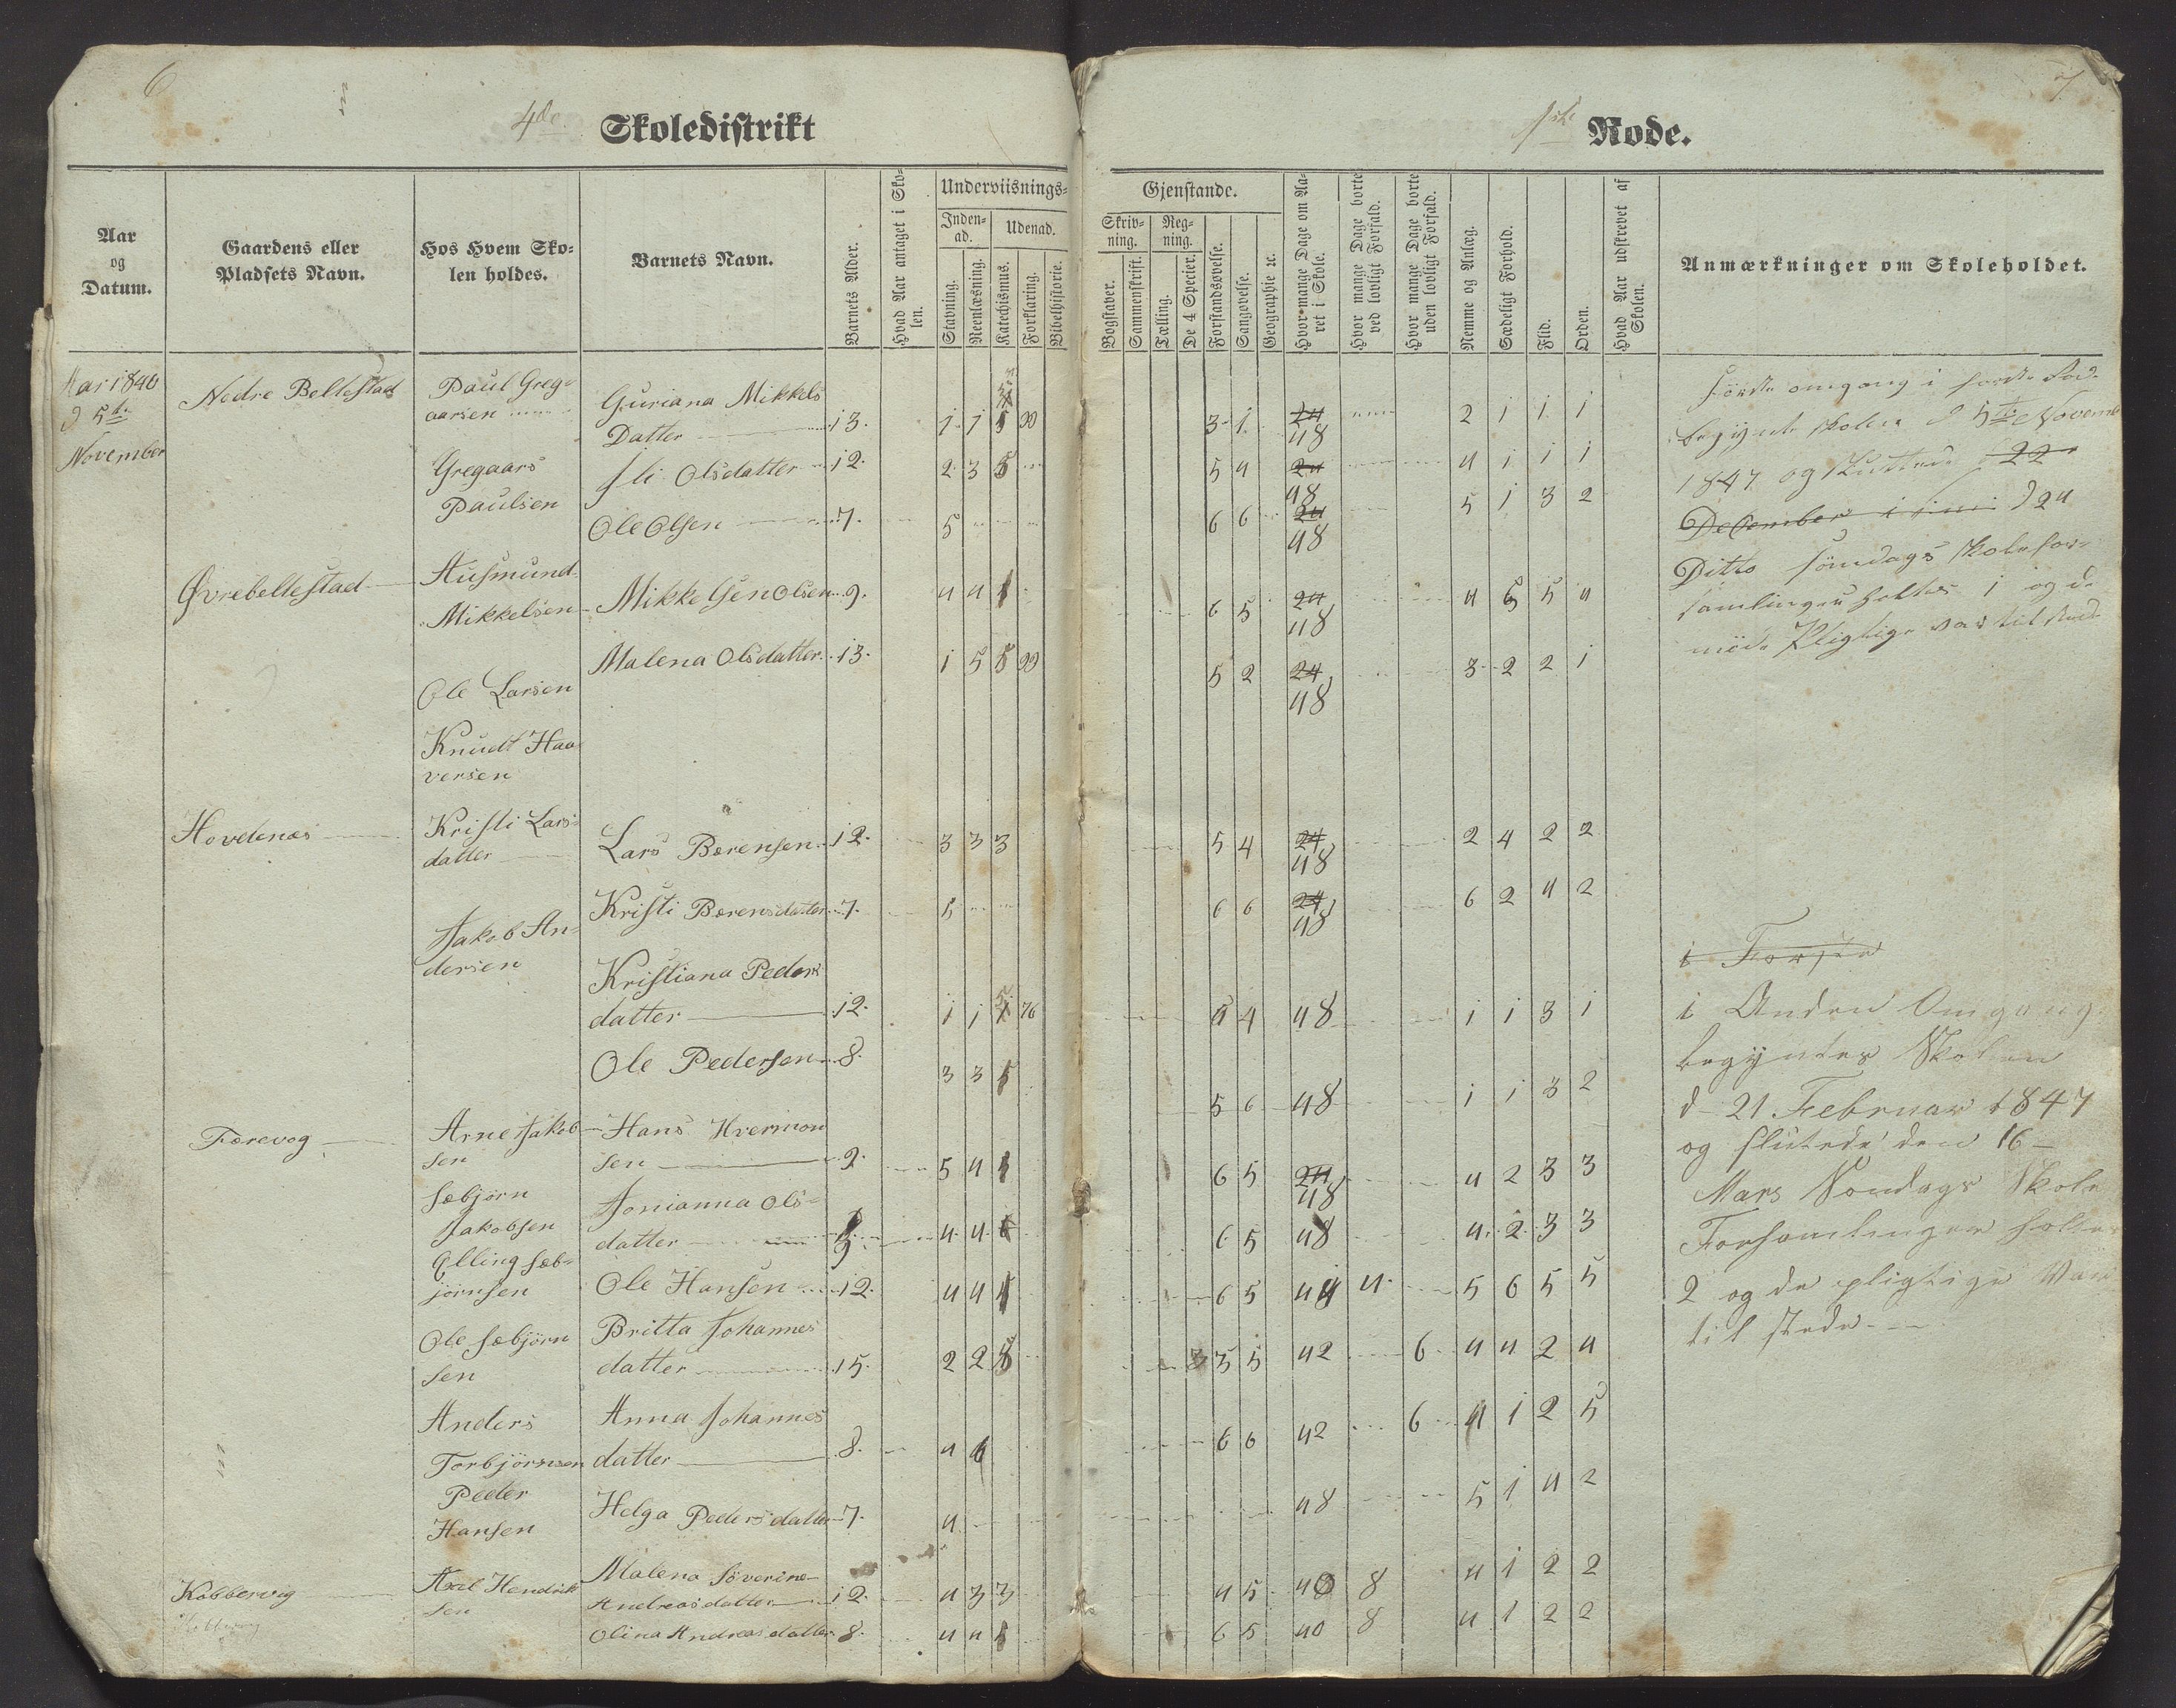 6
4de Skoledistrikt
Aar og Datum.
Gaardens eller Pladsets Navn.
Hos Hvem Skolen holdes.
Barnets Navn.
Barnets Alder.
Hvad Aar antaget i Skolen.
Underviisnings-
Indenad.
Udenad.
Stavning.
Reenlæsning.
Katechismus.
Forklaring.
Bibelhistorie.
1846
d 5te
November
Nedre Beltestad
Paul Greg-
aarsen
Guriana Mikkels
Datter 13. 1 1 90
Gregaars
Paulsen
Sli Olsdatter 12. 2 3 5
Ole Olsen 7. 5
Øvrebeltestad
Ausmund
Mikkelsen
Mikkelsen Olsen 9. 4 4 1
Malena Olsdatter 13. 1 5 8 90
Ole Larsen
Knudt Haa
versen
Hovdenæs
Kristi Lars-
datter
Lars Børensen 12. 3 3 3
Kristi Børensdatter 7. 5
Jakob An-
dersen
Kristiana Peders
datter 12. 1 1 76
Ole Pedersen 8. 3 3
Færevog
Arne Jakob
sen
Hans Hvermon
sen 9. 5 4
Sæbjørn
Jakobsen
Jonianna Ols-
datter 4 4
Elling Sæb-
jørnsen
Ole Hansen 12. 4 4
Ole Sæbjørn
sen
Britta Johannes
datter 15. 2 2 8
Anders
Torbjørnsen
Anna Johannes
datter 8. 4 6
Peder
Hansen
Helga Pedersdatter 7. 4
Kobbervig
Axel Hendrik
sen
Malena Søverine
Andreasdatter 12. 4 3 3
Olina Andreasdatter 8. 4 4
7
1ste Rode.
Gjenstande.
Skrivning.
Regning.
Bogstaver.
Sammenskrift.
Tælling.
De 4 Species.
Forstandsøvelse.
Sangøvelse.
Geographie ꝛc.
Hvor mange Dage om Aaret i Skole.
Hvor mange Dage borte ved lovligt Forfald.
Hvor mange Dage borte uden lovligt Forfald.
Nemme og Anlæg.
Sædeligt Forhold.
Flid.
Orden.
Hvad Aar udskrevet af Skolen.
Anmærkninger om Skoleholdet.
3 1 24 48 2 1 1 1
5 4 24 48 4 1 1 1
6 6 24 48 5 1 3 2
6 5 24 48 4 6 5 4
5 2 24 48 3 2 2 1
5 4 24 48 2 4 2 2
6 6 24 48 6 2 4 2
4 48 1 1 3 1
5 6 48 1 1 3 2
6 5 24 48 4 2 3 3
6 5 48 4 2 3 3
6 5 44 4 5 6 5 5
3 3 5 42 6 4 4 2 4
6 6 42 6 4 1 2 5
48 5 1 4 2
4 5 40 8 4 1 2 2
6 5 40 8 4 1 2 2
Første omgang i første Rode
begynte skolen d 5te Novemb
1847 og sluttede 22
December i d 24
Ditto søndags skolefor-
samlinger holtes 1 og de
møde Pligtige var til stede
i Første
i Anden Omgang
begyntes Skolen
d 21 Februar 1847
og slutede den 16
Mars Søndags Skole
Forsamlinger holtes
2 og de pligtige var
til stede